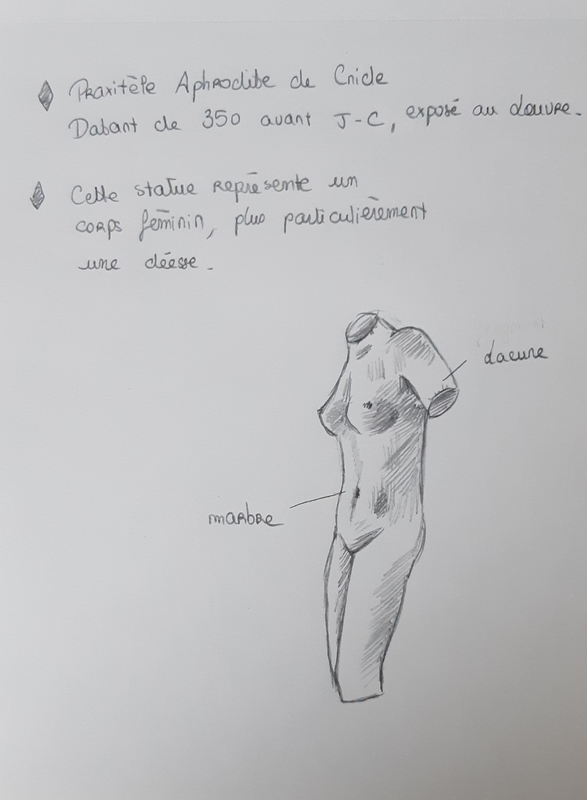 Praxitèle Aphrodite de Cnide
Datant de 350 avant J-C, exposé au Louvre.
Cette statue représente un
corps féminin, plus particulièrement
une déesse.
lacune
marbre